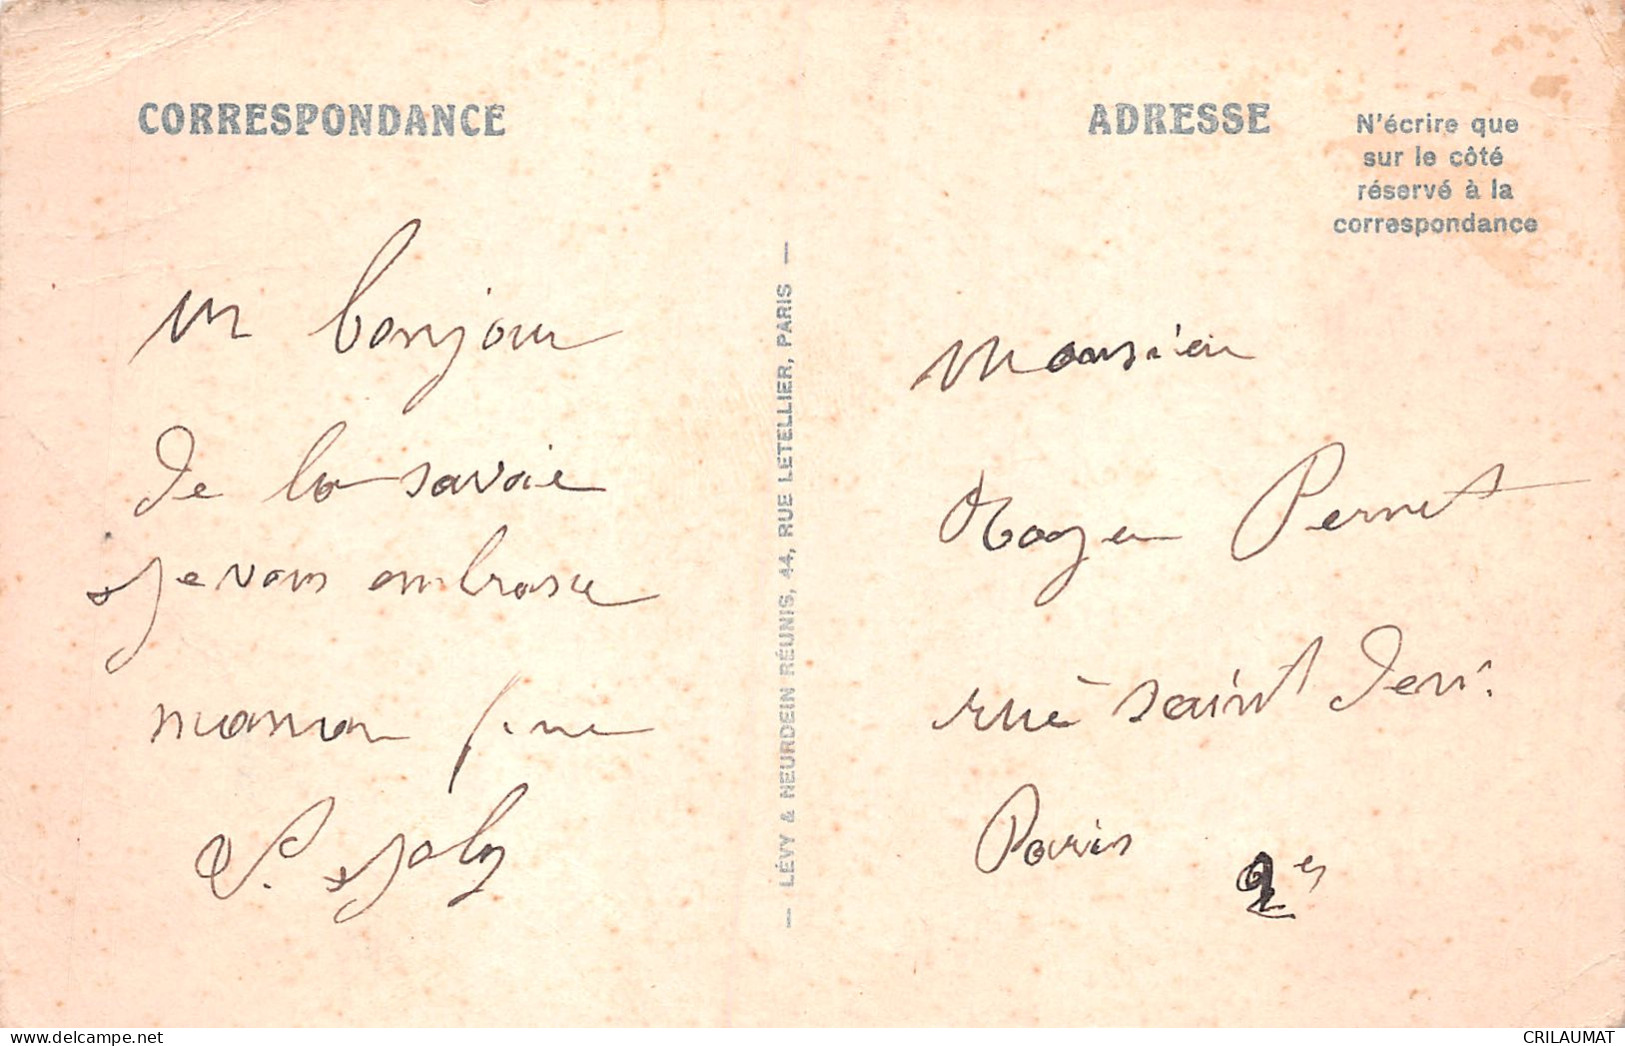 CORRESPONDANCE
un bonjour
de la savoie
je vous embrasse
maman
P. Joly
— LÉVY & NEURDEIN RÉUNIS, 44, RUE LETELLIER, PARIS —
ADRESSE
N'écrire que
sur le côté
réservé à la
correspondance
Monsieur
Roger Pernet
rue saint Denis
Paris 2e
www.delcampe.net
CRILAUMAT